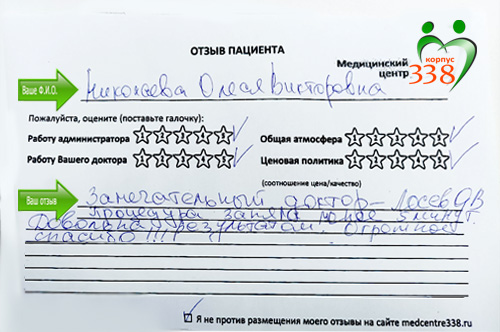 ОТЗЫВ ПАЦИЕНТА
Медицинский центр
корпус
338
Ваше Ф.И.О.
Николаева Олеся Викторовна
Пожалуйста, оцените (поставьте галочку):
Работу администратора
Общая атмосфера
Работу Вашего доктора
Ценовая политика
(соотношение цена/качество)
Ваш отзыв
Замечательный доктор - Лосев ДВ
процедура заняла менее 5 минут.
Довольна результатом. Огромное
спасибо !!!
Я не против размещения моего отзыва на сайте medcentre338.ru